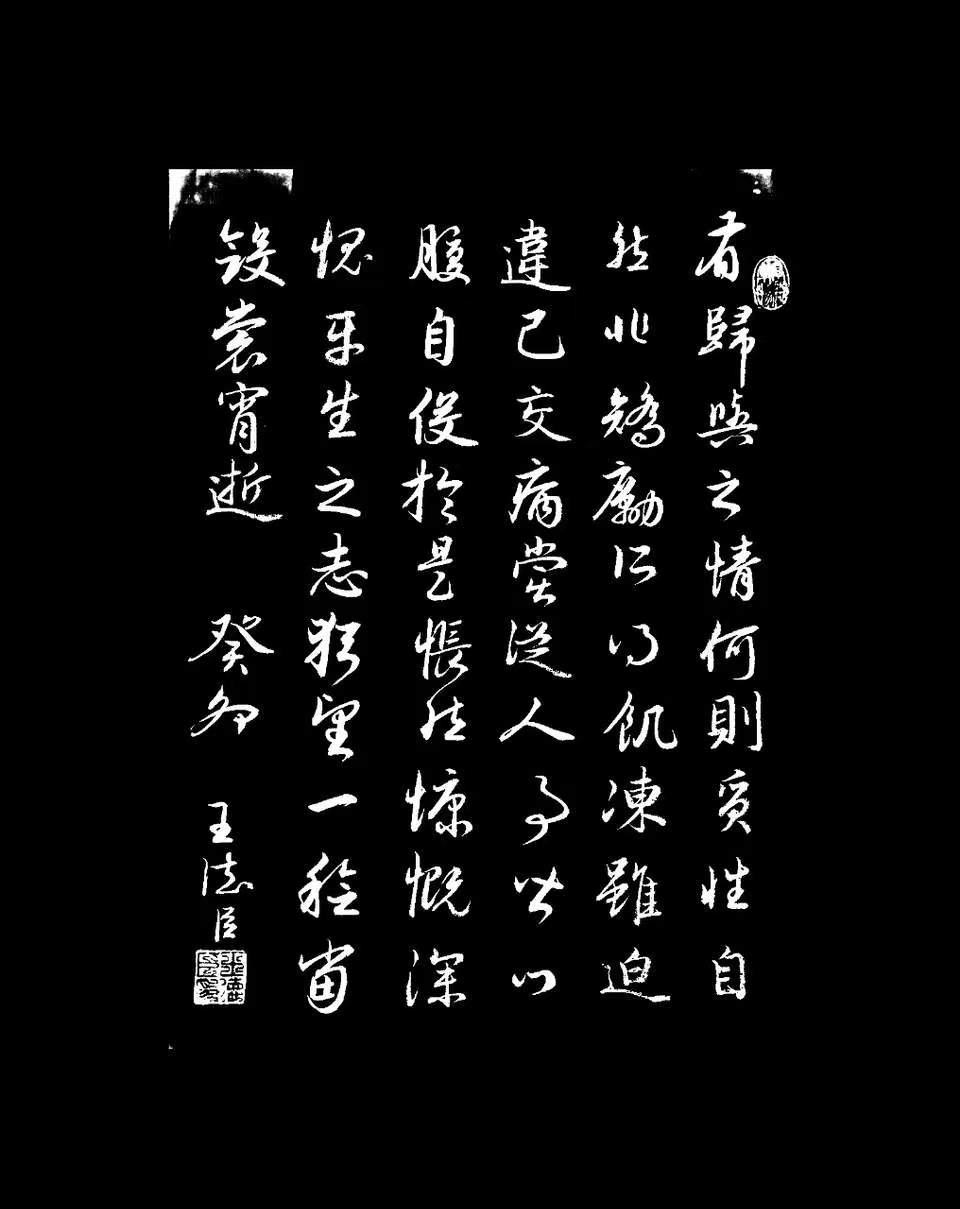 有歸與之情何則質性自
然非矯勵所得飢凍雖迫
違己交病嘗從人事皆口
腹自役於是悵然慷慨深
愧平生之志猶望一稔當
斂裳宵逝 癸卯 王德臣